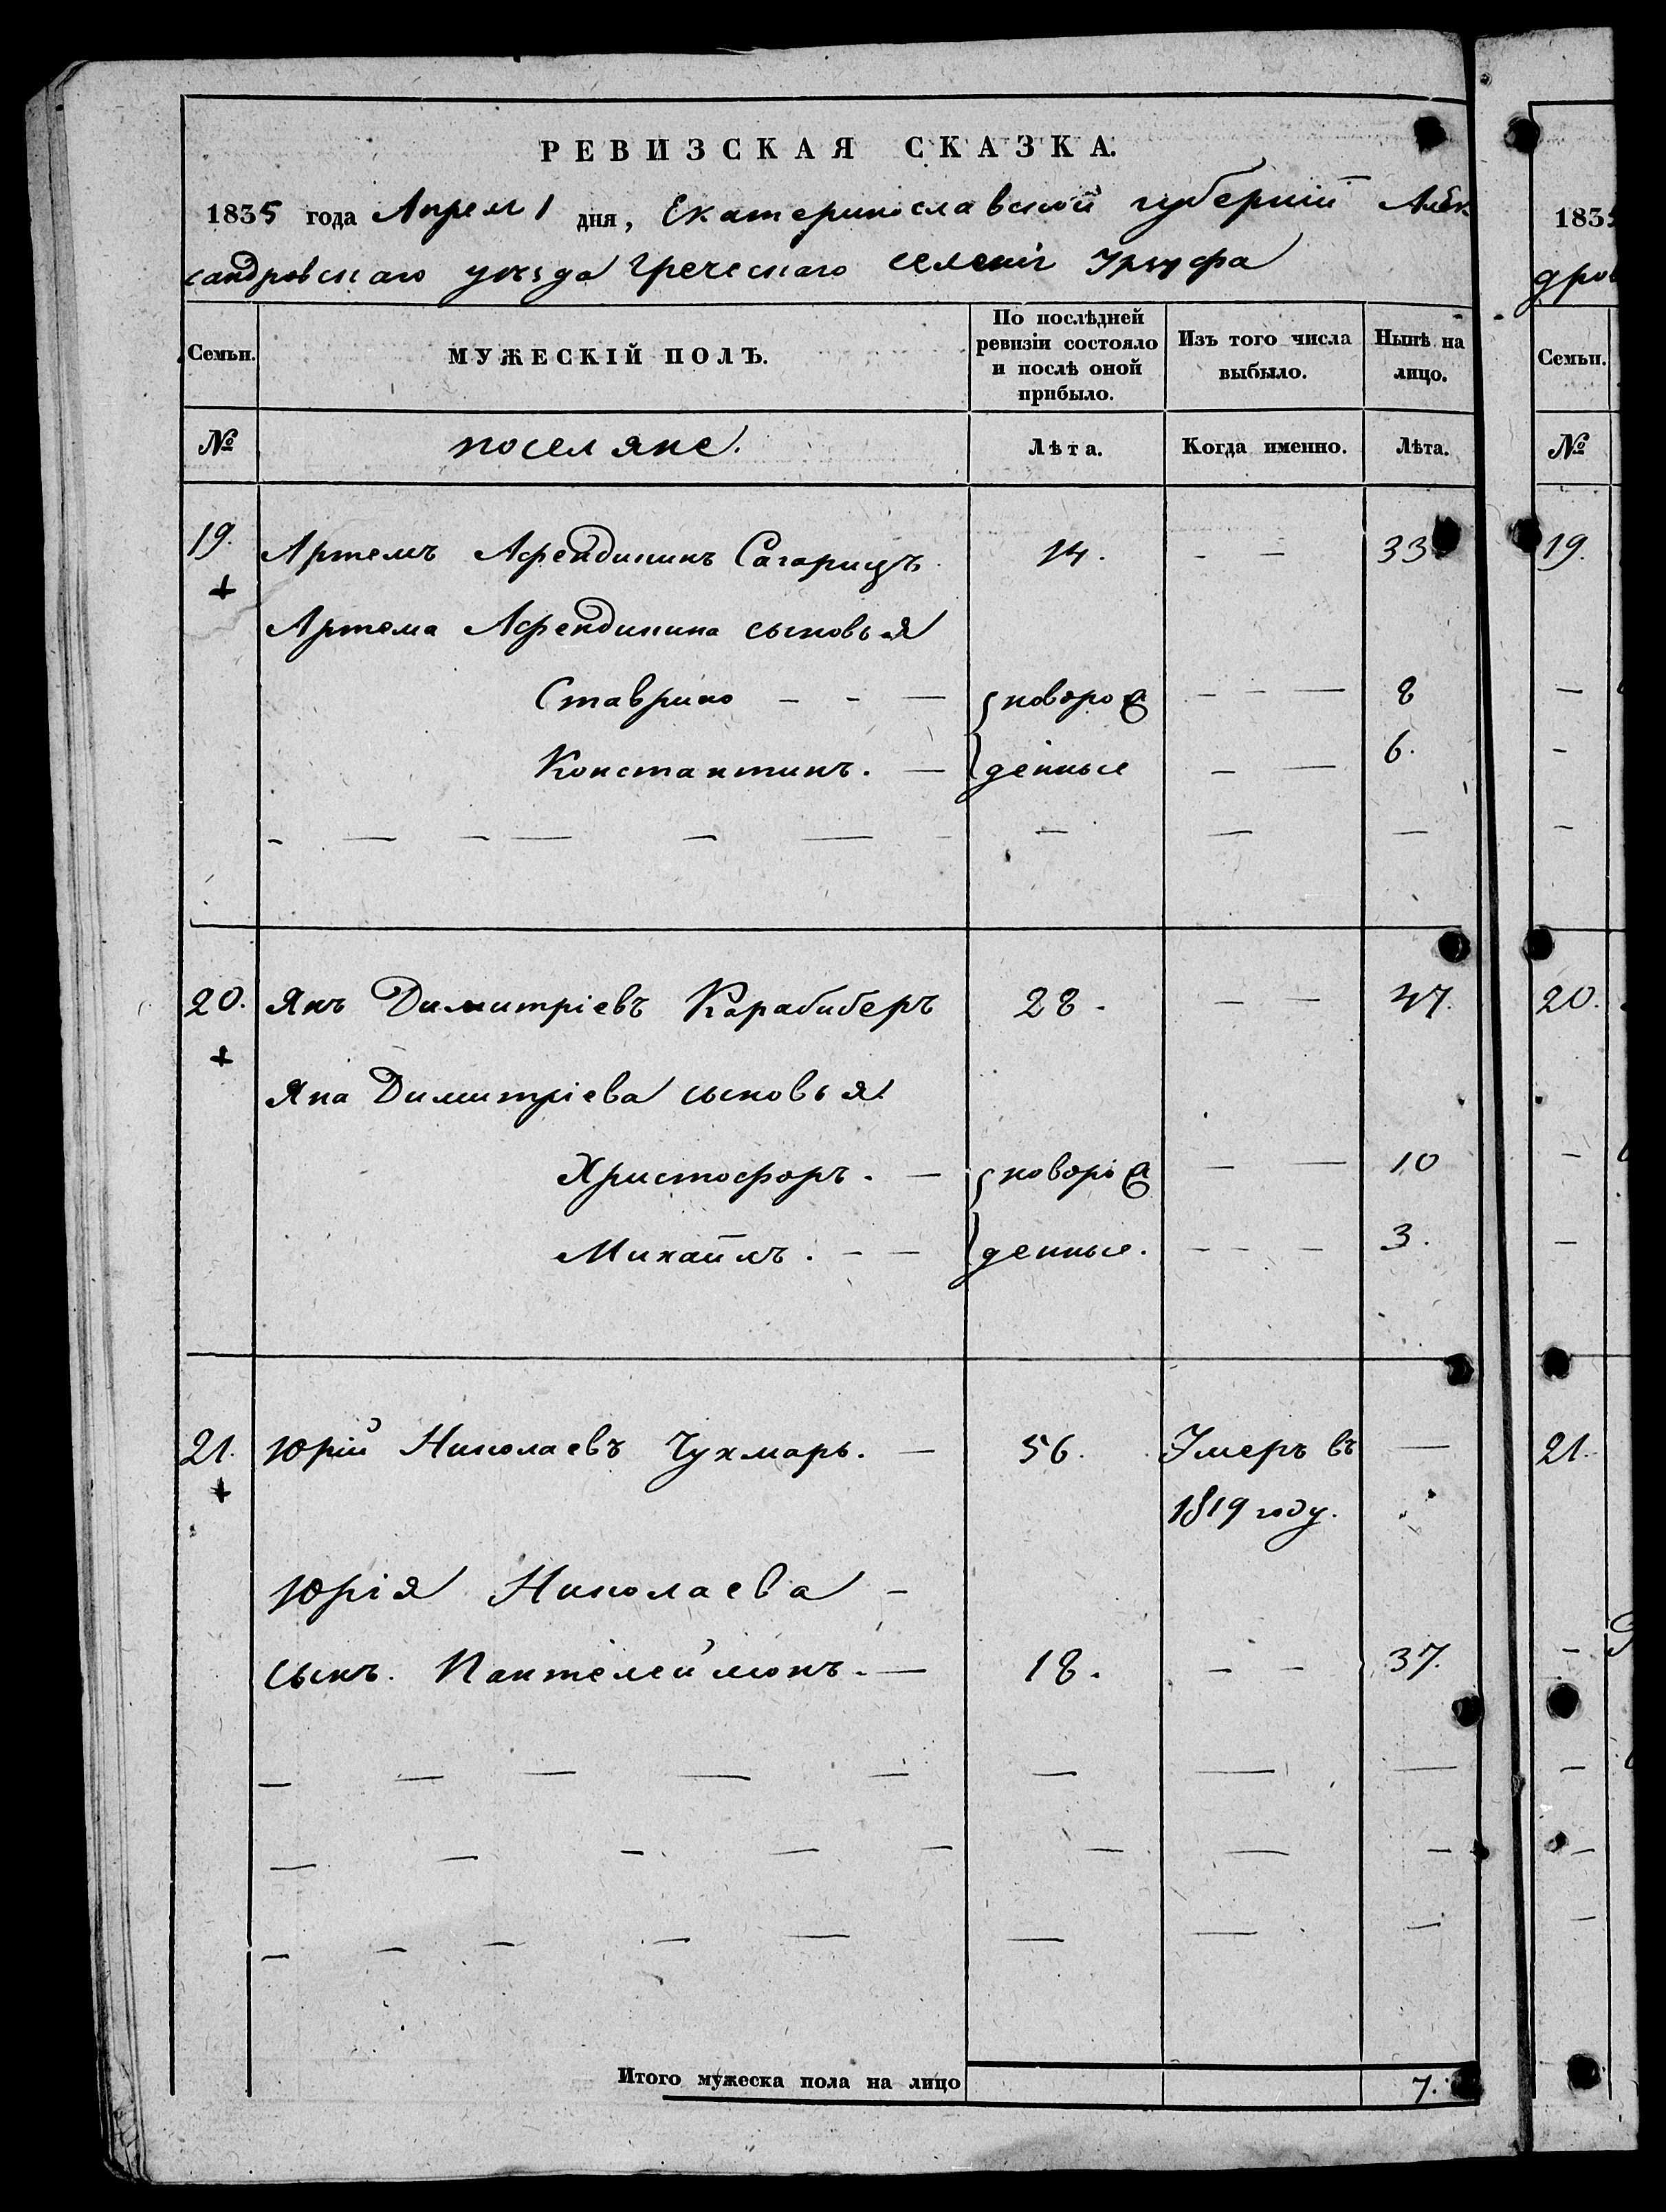 РЕВИЗСКАЯ СКАЗКА.
1835 года Апреля 1 дня, Екатеринославской губерніи Алек
сандровскаго уѣзда Греческаго селенія Урзуфа
Семьи.
МУЖЕСКІЙ ПОЛЪ.
По послѣдней ревизіи состояло и послѣ оной прибыло.
Изъ того числа выбыло.
Нынѣ на лицо.
№ поселяне. Лѣта. Когда именно. Лѣта.
19. Артемъ Афендикинъ Сагарицъ 14. - - 33
Артема Афендикина сыновья
Ставрино - - - новоро - - - 8
Константинъ. - денные - - 6.
20. Янъ Димитріевъ Карабиберъ 28. - - 47.
Яна Димитріева сыновья
Христофоръ. - новоро - - 10
Михаилъ. - - денные. - - - 3.
21. Юрій Николаевъ Чухмарь. - 56. Умеръ въ -
1819 году.
Юрія Николаева -
сынъ. Пантелеймонъ. - 18. - - 37.
Итого мужеска пола на лицо 7.
1835
дров
Семьи.
№
19.
20.
21.